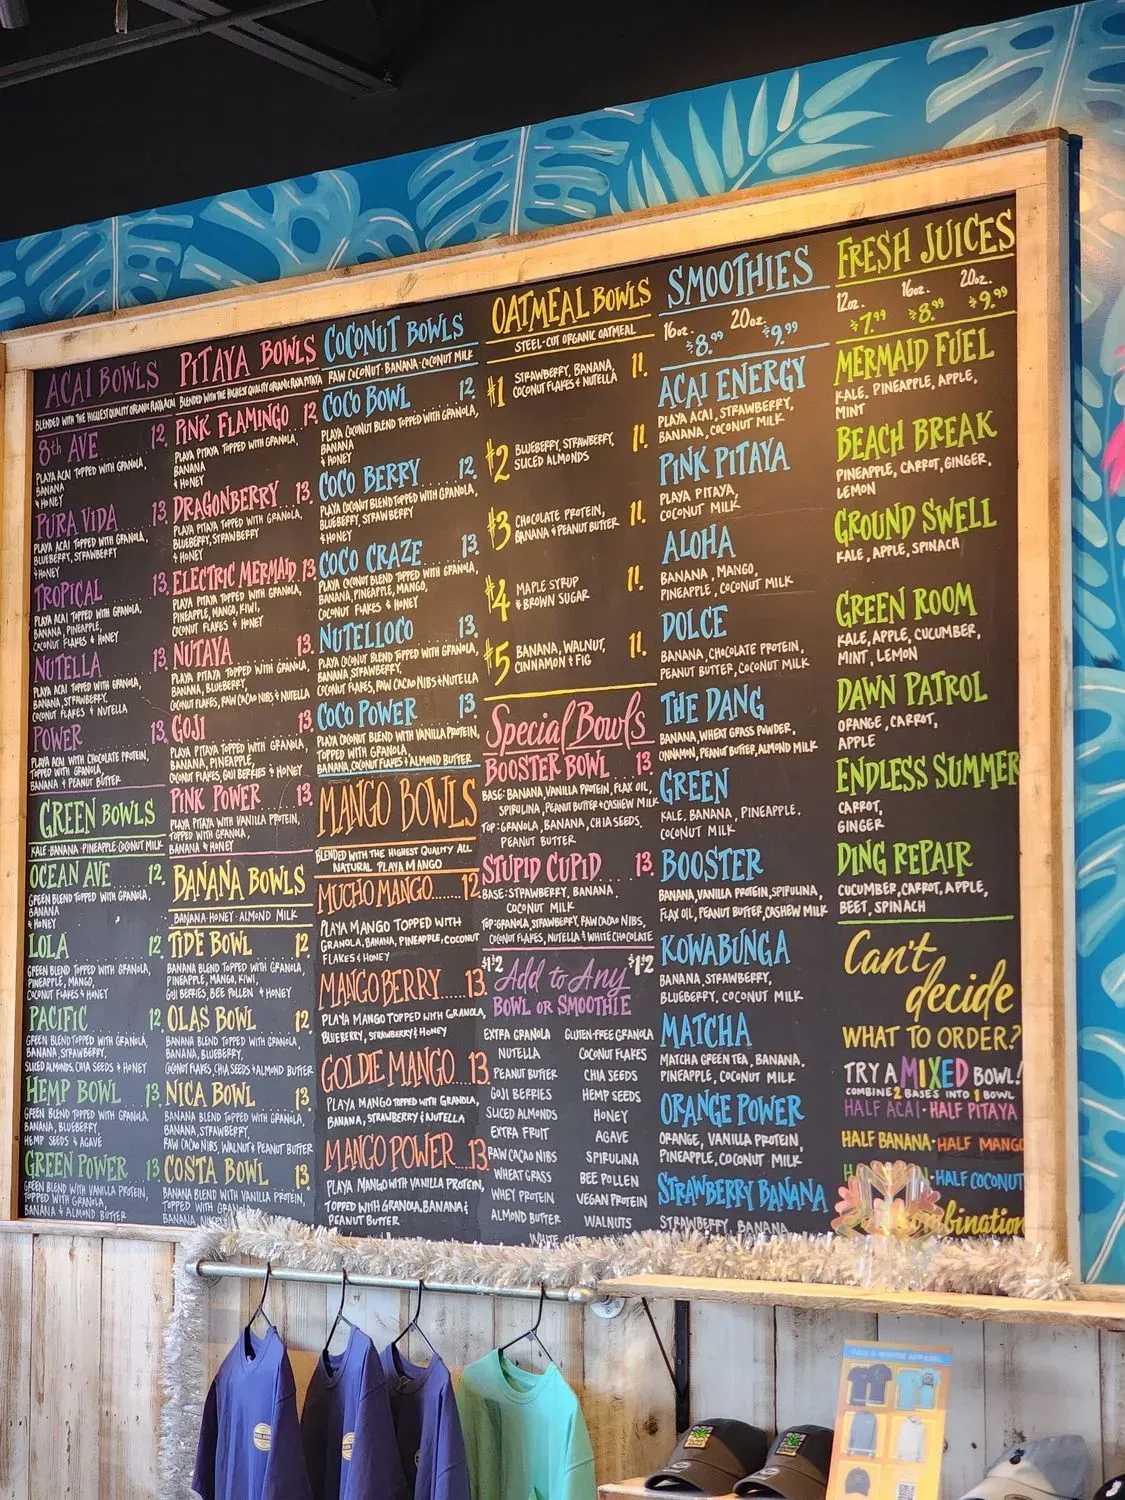 ACAI BOWLS
BLENDED WITH THE HIGHEST QUALITY ORGANIC PLAYA ACAI
8th AVE 12.
PLAYA ACAI TOPPED WITH GRANOLA,
BANANA
& HONEY
PURA VIDA 13.
PLAYA ACAI TOPPED WITH GRANOLA,
BLUEBERRY, STRAWBERRY
& HONEY
TROPICAL 13.
PLAYA ACAI TOPPED WITH GRANOLA,
BANANA, PINEAPPLE,
COCONUT FLAKES & HONEY
NUTELLA 13.
PLAYA ACAI TOPPED WITH GRANOLA,
BANANA, STRAWBERRY,
COCONUT FLAKES & NUTELLA
POWER 13.
PLAYA ACAI WITH CHOCOLATE PROTEIN,
TOPPED WITH GRANOLA,
BANANA & PEANUT BUTTER
GREEN BOWLS
KALE·BANANA·PINEAPPLE·COCONUT MILK
OCEAN AVE 12.
GREEN BLEND TOPPED WITH GRANOLA,
BANANA
& HONEY
LOLA 12.
GREEN BLEND TOPPED WITH GRANOLA,
PINEAPPLE, MANGO,
COCONUT FLAKES & HONEY
PACIFIC 12.
GREEN BLEND TOPPED WITH GRANOLA,
BANANA, STRAWBERRY,
SLICED ALMONDS, CHIA SEEDS & HONEY
HEMP BOWL 13.
GREEN BLEND TOPPED WITH GRANOLA,
BANANA, BLUEBERRY,
HEMP SEEDS & AGAVE
GREEN POWER 13.
GREEN BLEND WITH VANILLA PROTEIN,
TOPPED WITH GRANOLA,
BANANA & ALMOND BUTTER
PITAYA BOWLS
BLENDED WITH THE HIGHEST QUALITY ORGANIC PLAYA PITAYA
PINK FLAMINGO 12.
PLAYA PITAYA TOPPED WITH GRANOLA,
BANANA
& HONEY
DRAGONBERRY 13.
PLAYA PITAYA TOPPED WITH GRANOLA,
BLUEBERRY, STRAWBERRY
& HONEY
ELECTRIC MERMAID 13.
PLAYA PITAYA TOPPED WITH GRANOLA,
PINEAPPLE, MANGO, KIWI,
COCONUT FLAKES & HONEY
NUTAYA 13.
PLAYA PITAYA TOPPED WITH GRANOLA,
BANANA, BLUEBERRY,
COCONUT FLAKES, RAW CACAO NIBS & NUTELLA
GOJI 13.
PLAYA PITAYA TOPPED WITH GRANOLA,
BANANA, PINEAPPLE,
COCONUT FLAKES, GOJI BERRIES & HONEY
PINK POWER 13.
PLAYA PITAYA WITH VANILLA PROTEIN,
TOPPED WITH GRANOLA,
BANANA & HONEY
BANANA BOWLS
BANANA·HONEY·ALMOND MILK
TIDE BOWL 12.
BANANA BLEND TOPPED WITH GRANOLA,
PINEAPPLE, MANGO, KIWI,
GOJI BERRIES, BEE POLLEN & HONEY
OLAS BOWL 12.
BANANA BLEND TOPPED WITH GRANOLA,
BANANA, BLUEBERRY,
COCONUT FLAKES, CHIA SEEDS & ALMOND BUTTER
NICA BOWL 13.
BANANA BLEND TOPPED WITH GRANOLA,
BANANA, STRAWBERRY,
RAW CACAO NIBS, WALNUTS & PEANUT BUTTER
COSTA BOWL 13.
BANANA BLEND WITH VANILLA PROTEIN,
TOPPED WITH GRANOLA,
COCONUT BOWLS
RAW COCONUT·BANANA·COCONUT MILK
COCO BOWL 12.
PLAYA COCONUT BLEND TOPPED WITH GRANOLA,
BANANA
& HONEY
COCO BERRY 12.
PLAYA COCONUT BLEND TOPPED WITH GRANOLA,
BLUEBERRY, STRAWBERRY
& HONEY
COCO CRAZE 13.
PLAYA COCONUT BLEND TOPPED WITH GRANOLA,
BANANA, PINEAPPLE, MANGO,
COCONUT FLAKES & HONEY
NUTELLOCO 13.
PLAYA COCONUT BLEND TOPPED WITH GRANOLA,
BANANA, STRAWBERRY,
COCONUT FLAKES, RAW CACAO NIBS & NUTELLA
COCO POWER 13.
PLAYA COCONUT BLEND WITH VANILLA PROTEIN,
TOPPED WITH GRANOLA,
BANANA, COCONUT FLAKES & ALMOND BUTTER
MANGO BOWLS
BLENDED WITH THE HIGHEST QUALITY ALL
NATURAL PLAYA MANGO
MUCHO MANGO.......12
PLAYA MANGO TOPPED WITH
GRANOLA, BANANA, PINEAPPLE, COCONUT
FLAKES & HONEY
MANGO BERRY.....13
PLAYA MANGO TOPPED WITH GRANOLA,
BLUEBERRY, STRAWBERRY & HONEY
GOLDIE MANGO...13
PLAYA MANGO TOPPED WITH GRANOLA,
BANANA, STRAWBERRY & NUTELLA
MANGO POWER...13
PLAYA MANGO WITH VANILLA PROTEIN,
TOPPED WITH GRANOLA, BANANA &
PEANUT BUTTER
OATMEAL BOWLS
STEEL-CUT ORGANIC OATMEAL
#1 STRAWBERRY, BANANA, 11.
COCONUT FLAKES & NUTELLA
#2 BLUEBERRY, STRAWBERRY, 11.
SLICED ALMONDS
#3 CHOCOLATE PROTEIN, 11.
BANANA & PEANUT BUTTER
#4 MAPLE SYRUP 11.
& BROWN SUGAR
#5 BANANA, WALNUT, 11.
CINNAMON & FIG
Special Bowls
BOOSTER BOWL 13.
BASE: BANANA, VANILLA PROTEIN, FLAX OIL,
SPIRULINA, PEANUT BUTTER & CASHEW MILK
TOP: GRANOLA, BANANA, CHIA SEEDS,
PEANUT BUTTER
STUPID CUPID 13.
BASE: STRAWBERRY, BANANA
COCONUT MILK
TOP: GRANOLA, STRAWBERRY, RAW CACAO NIBS,
COCONUT FLAKES, NUTELLA & WHITE CHOCOLATE
$1-2 Add to Any $1-2
BOWL OR SMOOTHIE
EXTRA GRANOLA GLUTEN-FREE GRANOLA
NUTELLA COCONUT FLAKES
PEANUT BUTTER CHIA SEEDS
GOJI BERRIES HEMP SEEDS
SLICED ALMONDS HONEY
EXTRA FRUIT AGAVE
RAW CACAO NIBS SPIRULINA
WHEAT GRASS BEE POLLEN
WHEY PROTEIN VEGAN PROTEIN
ALMOND BUTTER WALNUTS
SMOOTHIES
16oz. $8.99 20oz. $9.99
ACAI ENERGY
PLAYA ACAI, STRAWBERRY,
BANANA, COCONUT MILK
PINK PITAYA
PLAYA PITAYA,
COCONUT MILK
ALOHA
BANANA, MANGO,
PINEAPPLE, COCONUT MILK
DOLCE
BANANA, CHOCOLATE PROTEIN,
PEANUT BUTTER, COCONUT MILK
THE DANG
BANANA, WHEAT GRASS POWDER,
CINNAMON, PEANUT BUTTER, ALMOND MILK
GREEN
KALE, BANANA, PINEAPPLE,
COCONUT MILK
BOOSTER
BANANA, VANILLA PROTEIN, SPIRULINA,
FLAX OIL, PEANUT BUTTER, CASHEW MILK
KOWABUNGA
BANANA, STRAWBERRY,
BLUEBERRY, COCONUT MILK
MATCHA
MATCHA GREEN TEA, BANANA,
PINEAPPLE, COCONUT MILK
ORANGE POWER
ORANGE, VANILLA PROTEIN,
PINEAPPLE, COCONUT MILK
STRAWBERRY BANANA
STRAWBERRY, BANANA
FRESH JUICES
12oz. $7.99 16oz. $8.99 20oz. $9.99
MERMAID FUEL
KALE, PINEAPPLE, APPLE,
MINT
BEACH BREAK
PINEAPPLE, CARROT, GINGER,
LEMON
GROUND SWELL
KALE, APPLE, SPINACH
GREEN ROOM
KALE, APPLE, CUCUMBER,
MINT, LEMON
DAWN PATROL
ORANGE, CARROT,
APPLE
ENDLESS SUMMER
CARROT,
GINGER
DING REPAIR
CUCUMBER, CARROT, APPLE,
BEET, SPINACH
Can't
decide
WHAT TO ORDER?
TRY A MIXED BOWL!
COMBINE 2 BASES INTO 1 BOWL
HALF ACAI·HALF PITAYA
HALF BANANA·HALF MANGO
·HALF COCONUT